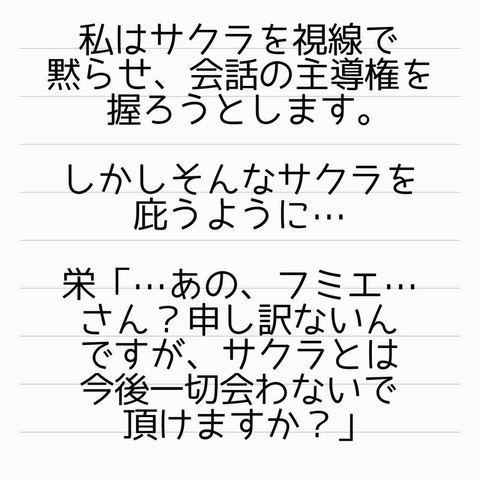 私はサクラを視線で
黙らせ、会話の主導権を
握ろうとします。
しかしそんなサクラを
庇うように…
栄「…あの、フミエ…
さん？申し訳ないん
ですが、サクラとは
今後一切会わないで
頂けますか？」